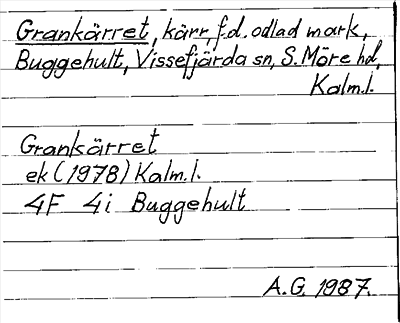 Grankärret, kärr, f.d. odlad mark,
Buggehult, Vissefjärda sn, S. Möre hd,
Kalm.l.
Grankärret
ek (1978) Kalm.l.
4F 4i Buggehult
A.G. 1987.